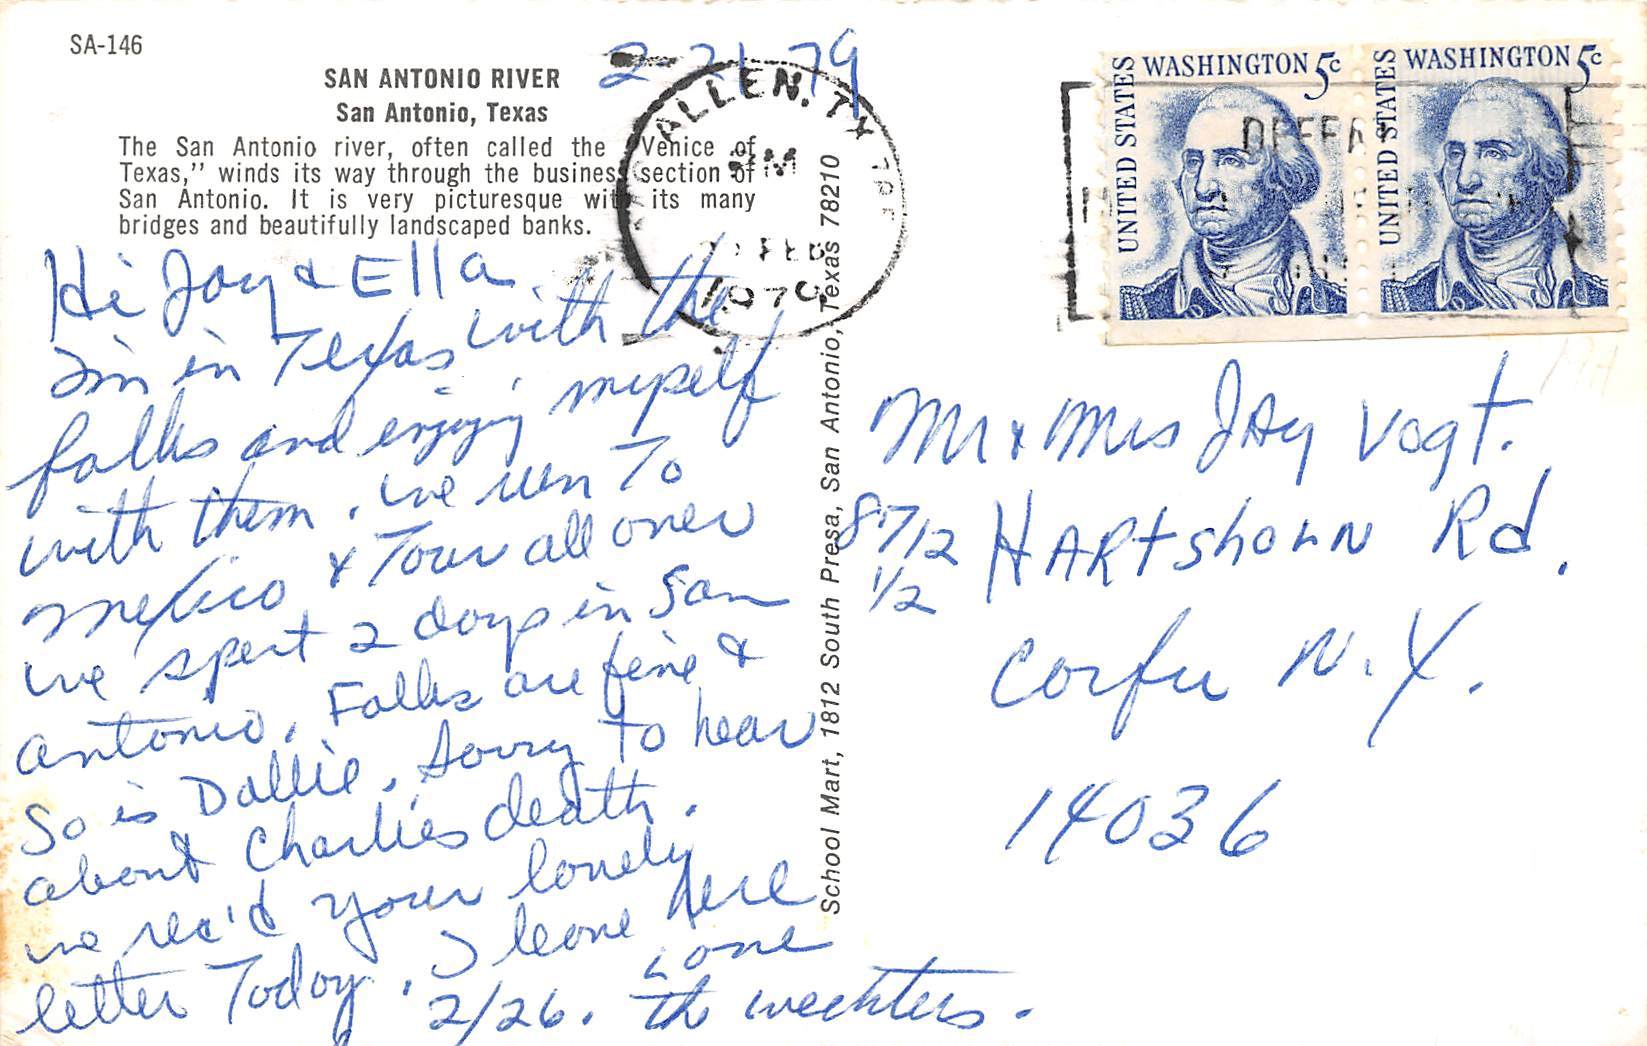 SA-146
SAN ANTONIO RIVER
San Antonio, Texas
The San Antonio river, often called the "Venice of
Texas," winds its way through the business section of
San Antonio. It is very picturesque with its many
bridges and beautifully landscaped banks.
2-21-79
ALLEN, TX
PM
FEB
1979
UNITED STATES
WASHINGTON 5c
UNITED STATES
WASHINGTON 5c
Hi Jay & Ella.
Im in Texas with the
folks and enjoying myself
with them. We wen To
Mexico & Tour all over
we spent 2 days in San
Antonio. Folks are fine &
So is Dallie. Sorry to hear
about Charlie's death.
we rec'd your lovely
letter Today. I leave here
2/26. Love
The
School Mart, 1812 South Presa, San Antonio, Texas 78210
Mr & Mrs JAy Vogt.
8712 HARtshoRN Rd.
1/2
Corfu N.Y.
14036